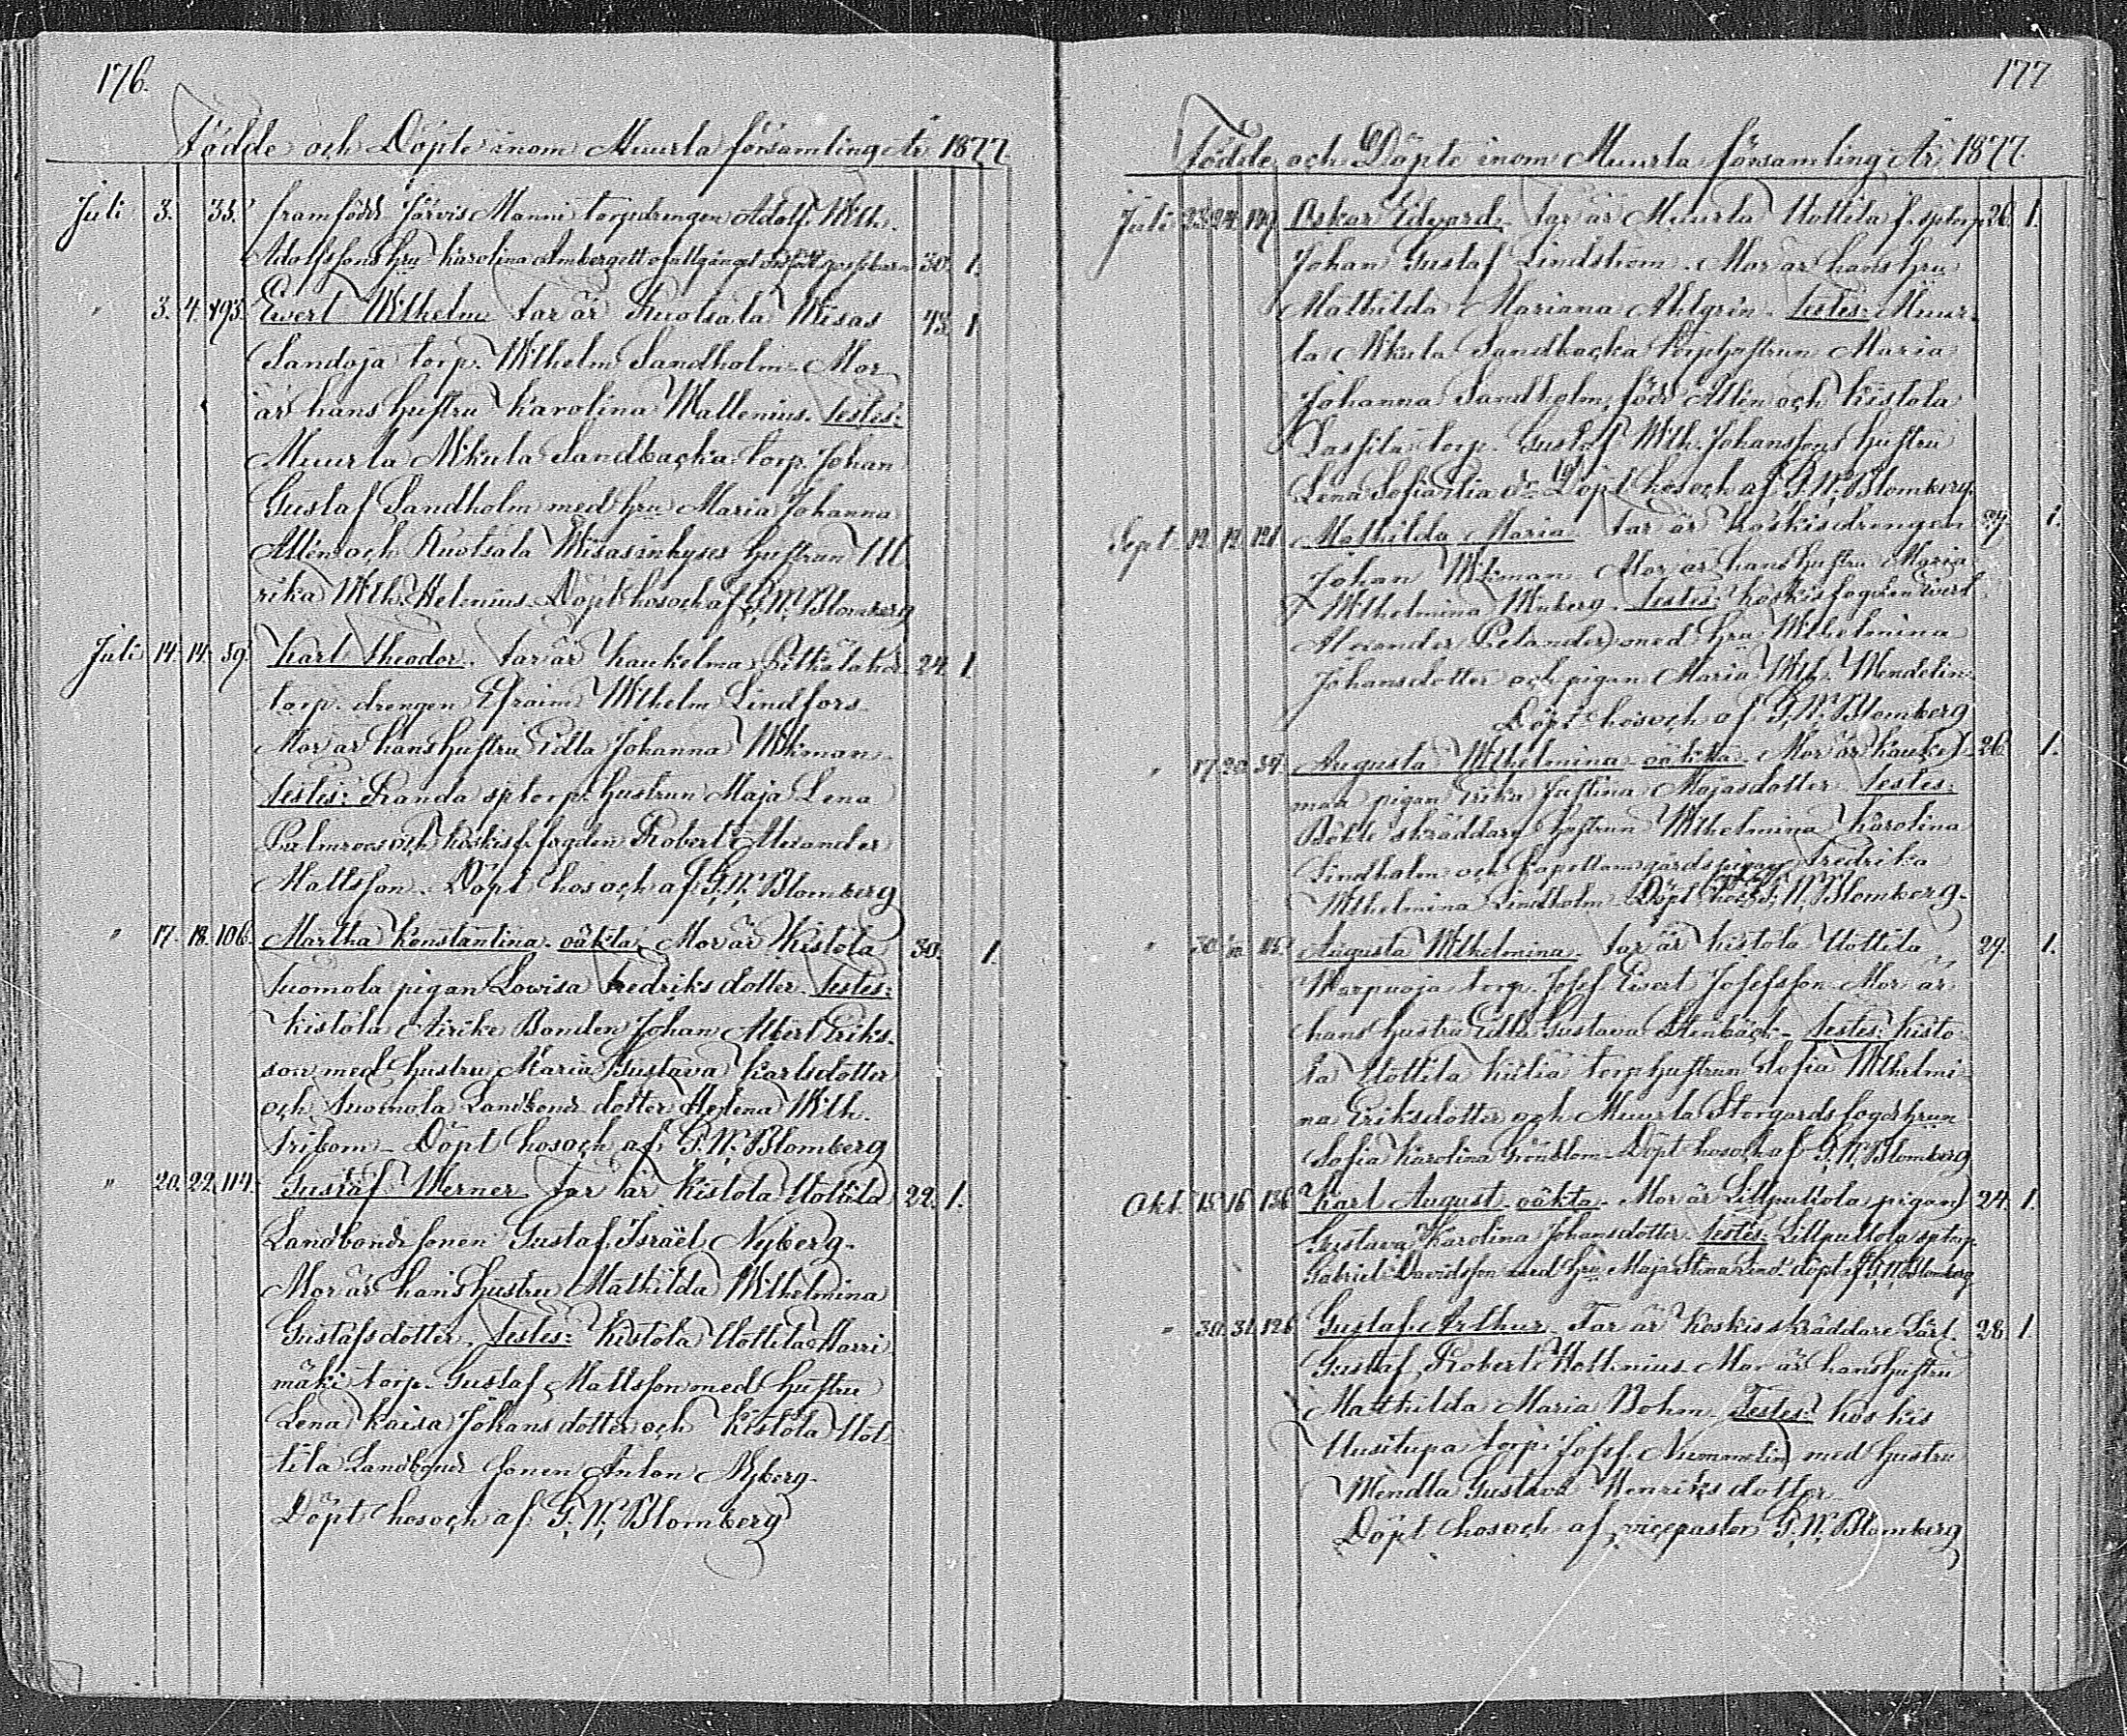 176.
Födde och Döpte inom Muurla församling År 1877.
Juli 3. 35. framfödd Järvis Manni torpdrengen Adolf Wilh.
Adolfssons hru Karolina Almberg ett ofullgånget gossebarn 30. 1.
" 3. 4. 193. Evert Wilhelm Far är Ruotsala Wisas 43. 1
Sandoja torp. Wilhelm Sandholm. Mor
är hans hustru Karolina Wallenius. Testes:
Muurla Nikula Sandbacka torp. Johan
Gustaf Sandholm med hru Maria Johanna
Allén och Ruotsala Wisas inhyses hustrun Ul
rika Wilh. Helenius. Döpt hos och af G. W. Blomberg
Juli 14. 14. 59. Karl Theodor. Far är Kaukelma Pitkälakos 24. 1.
torp. drengen Efraim Wilhelm Lindfors.
Mor är hans hustru Edla Johanna Wikman.
Testes: Randa sptorp. hustrun Maja Lena
Palmroos och Koskis f. fogden Robert Alexander
Mattsson. Döpt hos och af G. W. Blomberg
" 17. 18. 106. Martha Konstantina. oäkta. Mor är Kistola 30. 1.
Tuomola pigan Lowisa Fredriksdotter. Testes:
Kistola Airike Bonden Johan Albert Eriks-
son med hustru Maria Gustava Karlsdotter
och Tuomola Landbonde dotter Helena Wilh.
Fribom. Döpt hos och af G. W. Blomberg
" 20. 22. 114. Gustaf Werner Far är Kistola Uotila 22. 1.
Landbonde sonen Gustaf Israël Nyberg.
Mor är hans hustru Mathilda Wilhelmina
Gustafsdotter. Testes: Kistola Uottila Harri
mäki torp. Gustaf Mattsson med hustru
Lena Kaisa Johansdotter och Kistola Uot
tila Landbonde sonen Anton Nyberg.
Döpt hos och af G. W. Blomberg
177
Födde och Döpte inom Muurla församling År 1877.
Juli 23. 24. Oskar Edvard. Far är Muurla Uottila f. sptorp. 26. 1.
Johan Gustaf Lindström. Mor är hans hru
Mathilda Mariana Ahlgrén. Testes: Muur-
la Nikula Sandbacka torphustrun Maria
Johanna Sandholm, född Allén och Kistola
Lassila torp. Gustaf Wilh. Johanssons hustru
Lena Sofia Döpt hos och af G. W. Blomberg.
Sept. 12. 12. 121. Mathilda Maria. Far är Koskisdrengen 27. 1.
Johan Wikman. Mor är hans hustru Maria
Wilhelmina Winberg. Testes: Koskis fogden Evert
Alexander Pelander med hru Wilhelmina
Johansdotter och pigan Maria Wilh. Wendelin.
Döpt hos och af G. W. Blomberg
" 17. 20. 39. Augusta Wilhelmina. oäkta. Mor är Kaukel- 26. 1.
maa pigan Erika Justina Majasdotter. Testes:
skräddare hustrun Wilhelmina Karolina
Lindholm och Kapellansgårds pigan Fredrika
Wilhelmina Lindholm. Döpt hos G. W. Blomberg.
" 30. Augusta Wilhelmina. Far är Kistola Uottila 29. 1.
Warpuoja torp. Josef Evert Josefsson. Mor är
hans hustru Edla Gustava Stenbäck. Testes: Kisto-
la Uottila Kulia torphustrun Sofia Wilhelmi-
na Eriksdotter och Muurla Storgårds fogdehrun
Sofia Karolina Grönblom. Döpt hos och af G. W. Blomberg
Okt. 15. 16. 136. Karl August. oäkta. Mor är Lillputtola pigan 24. 1.
Gustava Karolina Johansdotter. Testes: Lillputtola sptorp.
Gabriel Davidsson med hru Maja Stina Lind. döpt af G. W. Blomberg
" 30. 31. 126. Gustaf Arthur. Far är Koskis skräddare Lärl. 28. 1.
Gustaf Robert Wallenius. Mor är hans hustru
Mathilda Maria Bohm. Testes: Koskis
Uusitupa torp. Josef Nummelin med hustru
Wendla Gustava Henriksdotter.
Döpt hos och af vicepastor G. W. Blomberg